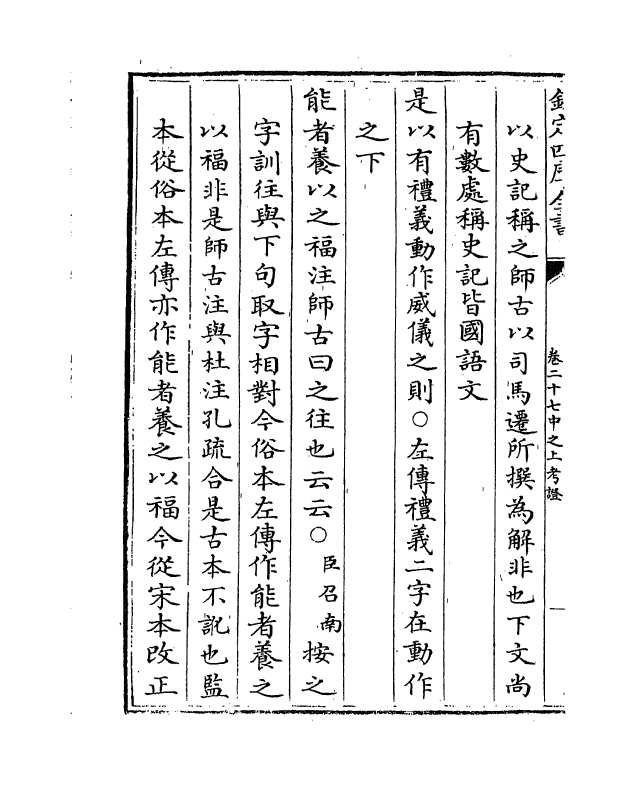 欽定四庫全書
卷二十七中之上考證
以史記稱之師古以司馬遷所撰為解非也下文尚
有數處稱史記皆國語文
是以有禮義動作威儀之則○左傳禮義二字在動作
之下
能者養以之福注師古曰之往也云云○臣召南按之
字訓往與下句取字相對今俗本左傳作能者養之
以福非是師古注與杜注孔疏合是古本不訛也監
本從俗本左傳亦作能者養之以福今從宋本改正